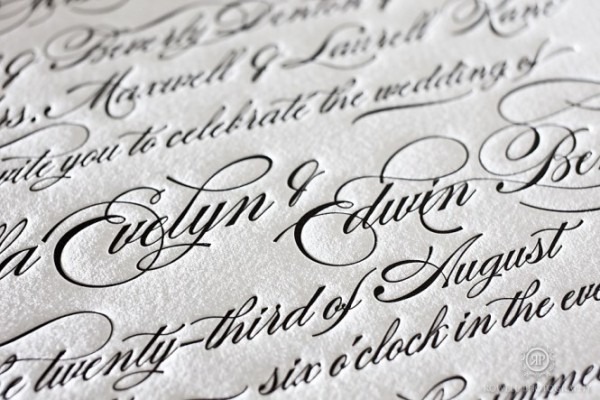 & Beverly Denton
Maxwell & Laurell Kane
you to celebrate the wedding of
Evelyn & Edwin
twenty-third of August
six o'clock in the
RR